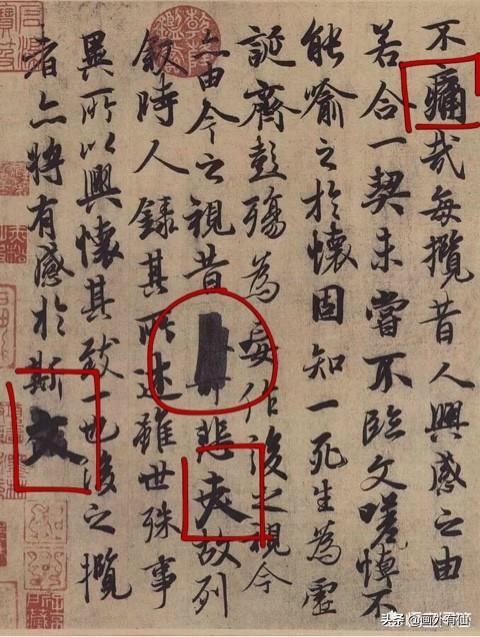 不痛哉每攬昔人興感之由
若合一契未嘗不臨文嗟悼不
能喻之於懷固知一死生為虛
誕齊彭殤為妄作後之視今
亦由今之視昔悲夫故列
叙時人錄其所述雖世殊事
異所以興懷其致一也後之攬
者亦將有感於斯文
头条 @画外有